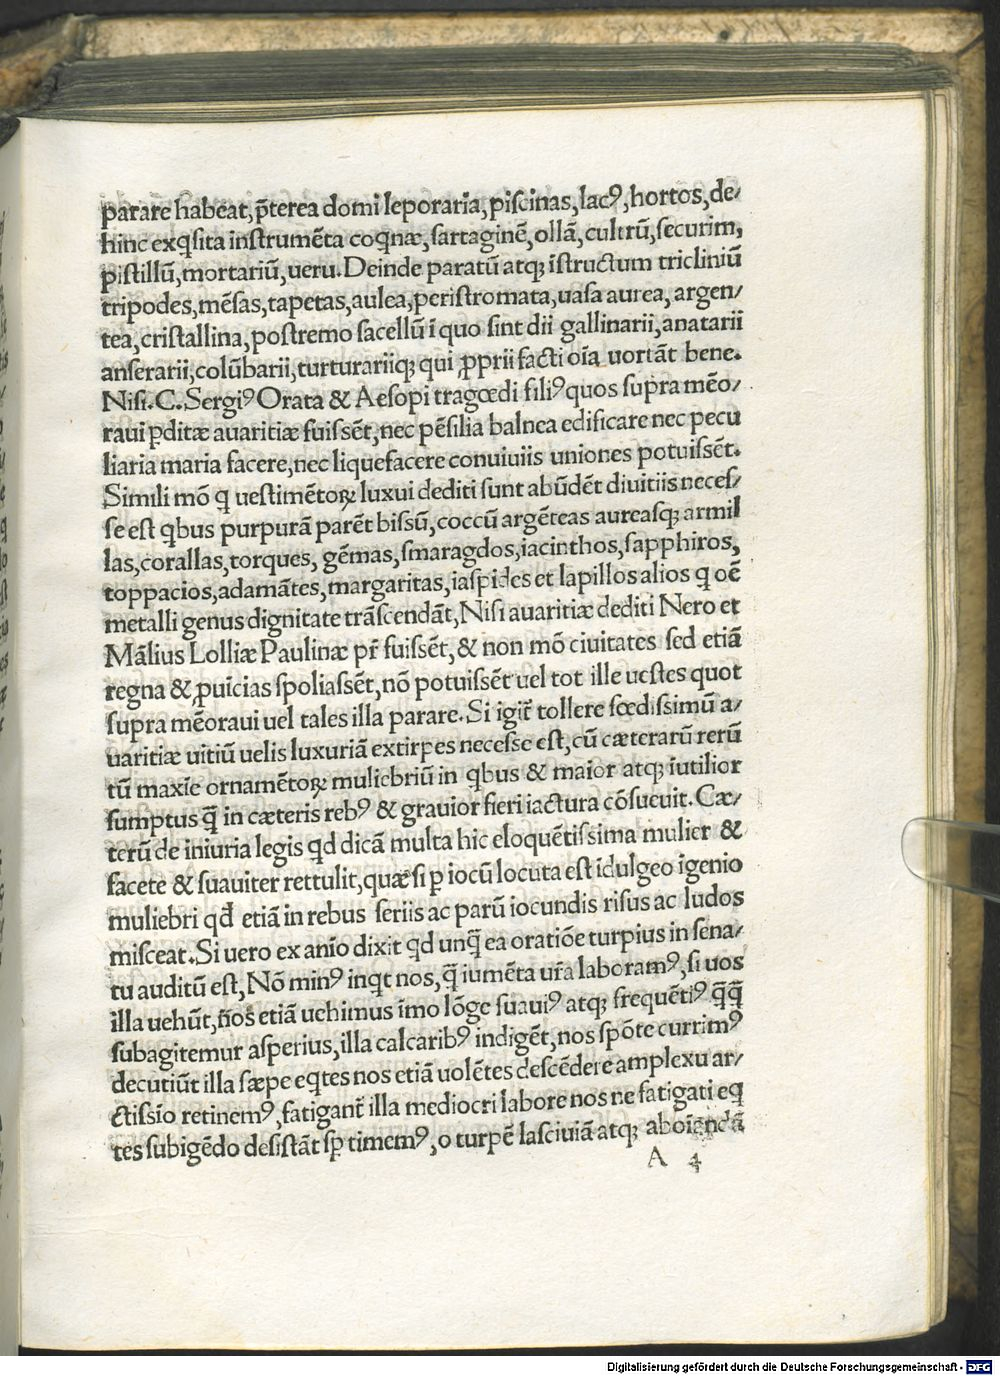 parare habeat, p̄terea domi leporaria, piſcinas, lacꝰ, hortos, de/
hinc exqſita inſtrumēta coqnæ, ſartaginē, ollā, cultrū, ſecurim,
piſtillū, mortariū, ueru. Deinde paratū atqꝫ īſtructum tricliniū
tripodes, mēſas, tapetas, aulea, periſtromata, uaſa aurea, argen/
tea, criſtallina, poſtremo ſacellū ī quo ſint dii gallinarii, anatarii
anſerarii, colūbarii, turturariiqꝫ qui ꝓprii facti oīa uortāt bene.
Niſi. C. Sergiꝰ Orata & Aeſopi tragœdi filiꝰ quos ſupra mēo/
raui pditæ auaritiæ fuiſſēt, nec pēſilia balnea edificare nec pecu
liaria maria facere, nec liquefacere conuiuiis uniones potuiſſēt.
Simili mō q ueſtimētoꝝ luxui dediti ſunt abūdēt diuitiis neceſ/
ſe eſt qbus purpurā parēt biſſū, coccū argēteas aureaſqꝫ armil
las, corallas, torques, gēmas, ſmaragdos, iacinthos, ſapphiros,
toppacios, adamātes, margaritas, iaſpides et lapillos alios q oē
metalli genus dignitate trāſcendāt, Niſi auaritiæ dediti Nero et
Mālius Lolliæ Paulinæ pr̄ fuiſſēt, & non mō ciuitates ſed etiā
regna & ꝓuīcias ſpoliaſſēt, nō potuiſſēt uel tot ille ueſtes quot
ſupra mēoraui uel tales illa parare. Si igit̄ tollere fœdiſſimū a/
uaritiæ uitiū uelis luxuriā extirpes neceſſe eſt, cū cæterarū rerū
tū maxīe ornamētoꝝ muliebriū in qbus & maior atqꝫ īutilior
ſumptus q̄ in cæteris rebꝰ & grauior fieri iactura cōſueuit. Cæ/
terū de iniuria legis qd dicā multa hic eloquētiſſima mulier &
facete & ſuauiter rettulit, quæ ſi ꝑ iocū locuta eſt īdulgeo īgenio
muliebri qđ etiā in rebus ſeriis ac parū iocundis riſus ac ludos
miſceat. Si uero ex anīo dixit qd unq̄ ea oratiōe turpius in ſena/
tu auditū eſt, Nō minꝰ inqt nos, q̄ iumēta ur̄a laboramꝰ, ſi uos
illa uehūt, n̄os etiā uehimus īmo lōge ſuauiꝰ atqꝫ frequētiꝰ q̄q̄
ſubagitemur aſperius, illa calcaribꝰ indigēt, nos ſpōte currimꝰ
decutiūt illa ſæpe eqtes nos etiā uolētes deſcēdere amplexu ar/
ctiſſīo retinemꝰ, fatigant̄ illa mediocri labore nos ne fatigati eq
tes ſubigēdo deſiſtāt ſꝑ timemꝰ, o turpē laſciuiā atqꝫ aboīandā
A 4
Digitalisierung gefördert durch die Deutsche Forschungsgemeinschaft - DFG